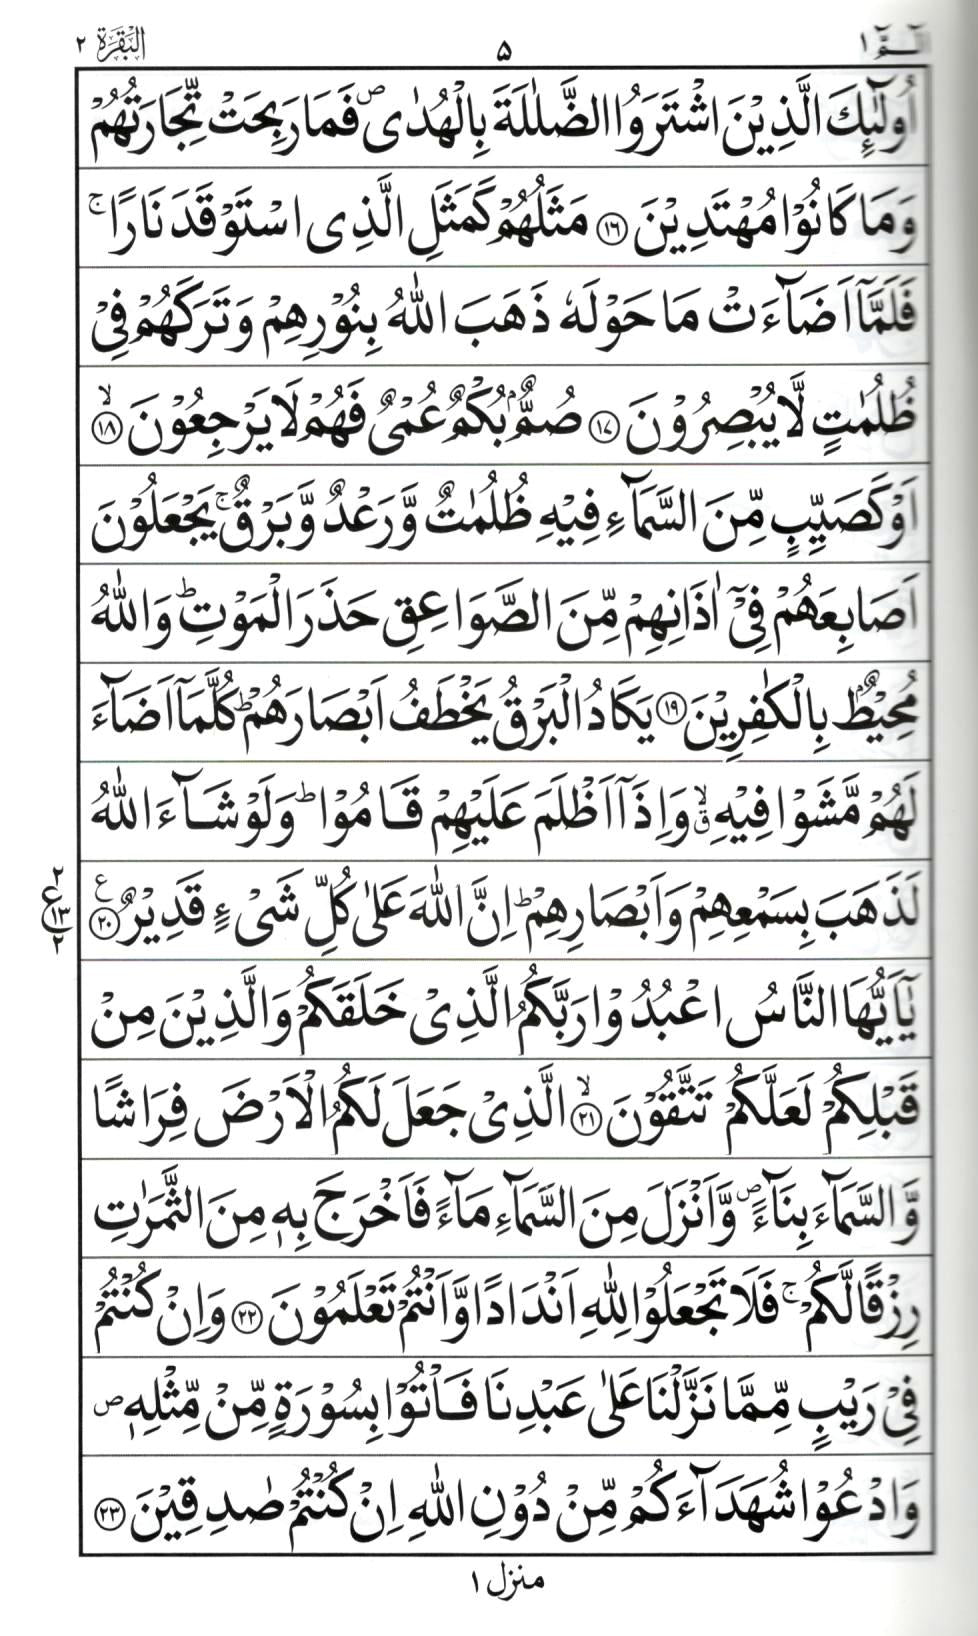 الٓمّٓ ١ ٥ البَقَرَة ٢
اُولٰٓئِكَ الَّذِيْنَ اشْتَرَوُا الضَّلٰلَةَ بِالْهُدٰى ۖ فَمَا رَبِحَتْ تِّجَارَتُهُمْ
وَمَا كَانُوْا مُهْتَدِيْنَ ﴿١٦﴾ مَثَلُهُمْ كَمَثَلِ الَّذِى اسْتَوْقَدَ نَارًا ۚ
فَلَمَّآ اَضَآءَتْ مَا حَوْلَهٗ ذَهَبَ اللّٰهُ بِنُوْرِهِمْ وَتَرَكَهُمْ فِىْ
ظُلُمٰتٍ لَّا يُبْصِرُوْنَ ﴿١٧﴾ صُمٌّۢ بُكْمٌ عُمْىٌ فَهُمْ لَا يَرْجِعُوْنَ ۙ ﴿١٨﴾
اَوْ كَصَيِّبٍ مِّنَ السَّمَآءِ فِيْهِ ظُلُمٰتٌ وَّرَعْدٌ وَّبَرْقٌ ۚ يَجْعَلُوْنَ
اَصَابِعَهُمْ فِىْٓ اٰذَانِهِمْ مِّنَ الصَّوَاعِقِ حَذَرَ الْمَوْتِ ؕ وَاللّٰهُ
مُحِيْطٌۢ بِالْكٰفِرِيْنَ ﴿١٩﴾ يَكَادُ الْبَرْقُ يَخْطَفُ اَبْصَارَهُمْ ؕ كُلَّمَآ اَضَآءَ
لَهُمْ مَّشَوْا فِيْهِ ۙۗ وَاِذَآ اَظْلَمَ عَلَيْهِمْ قَامُوْا ؕ وَلَوْ شَآءَ اللّٰهُ
لَذَهَبَ بِسَمْعِهِمْ وَاَبْصَارِهِمْ ؕ اِنَّ اللّٰهَ عَلٰى كُلِّ شَىْءٍ قَدِيْرٌ ﴿٢٠﴾ ع ٢ ١٣ ٢
يٰٓاَيُّهَا النَّاسُ اعْبُدُوْا رَبَّكُمُ الَّذِىْ خَلَقَكُمْ وَالَّذِيْنَ مِنْ
قَبْلِكُمْ لَعَلَّكُمْ تَتَّقُوْنَ ۙ ﴿٢١﴾ الَّذِىْ جَعَلَ لَكُمُ الْاَرْضَ فِرَاشًا
وَّالسَّمَآءَ بِنَآءً ۖ وَّاَنْزَلَ مِنَ السَّمَآءِ مَآءً فَاَخْرَجَ بِهٖ مِنَ الثَّمَرٰتِ
رِزْقًا لَّكُمْ ۚ فَلَا تَجْعَلُوْا لِلّٰهِ اَنْدَادًا وَّاَنْتُمْ تَعْلَمُوْنَ ﴿٢٢﴾ وَاِنْ كُنْتُمْ
فِىْ رَيْبٍ مِّمَّا نَزَّلْنَا عَلٰى عَبْدِنَا فَاْتُوْا بِسُوْرَةٍ مِّنْ مِّثْلِهٖ ۖ
وَادْعُوْا شُهَدَآءَكُمْ مِّنْ دُوْنِ اللّٰهِ اِنْ كُنْتُمْ صٰدِقِيْنَ ﴿٢٣﴾
منزل ١